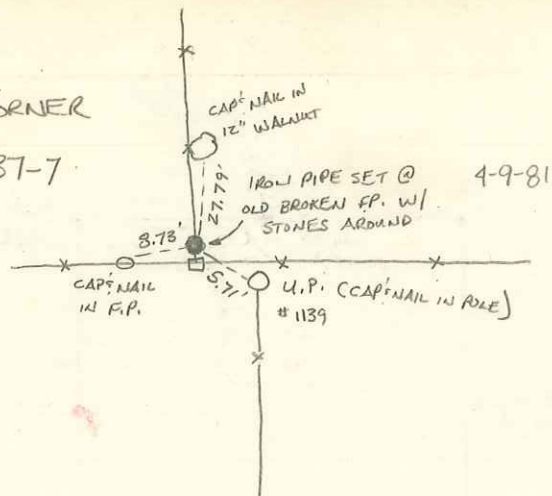 CORNER
37-7
4-9-81
CAP & NAIL IN
12" WALNUT
27.79'
IRON PIPE SET @
OLD BROKEN F.P. W/
STONES AROUND
8.73'
5.71'
CAP & NAIL
IN F.P.
U.P. (CAP & NAIL IN POLE)
# 1139